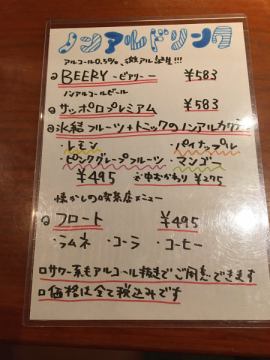 ノンアルドリンク
アルコール0.5%、微アル誕生!!!
BEERY -ビアリー- ¥583
ノンアルコールビール
サッポロプレミアム ¥583
氷結フルーツ+トニックのノンアルカクテ
・レモン ・パイナップル
・ピンクグレープフルーツ ・マンゴー
¥495 中おかわり ¥275
懐かしの喫茶店メニュー
フロート ¥495
・ラムネ ・コーラ ・コーヒー
□サワー系もアルコール抜きでご用意できます
□価格は全て税込みです